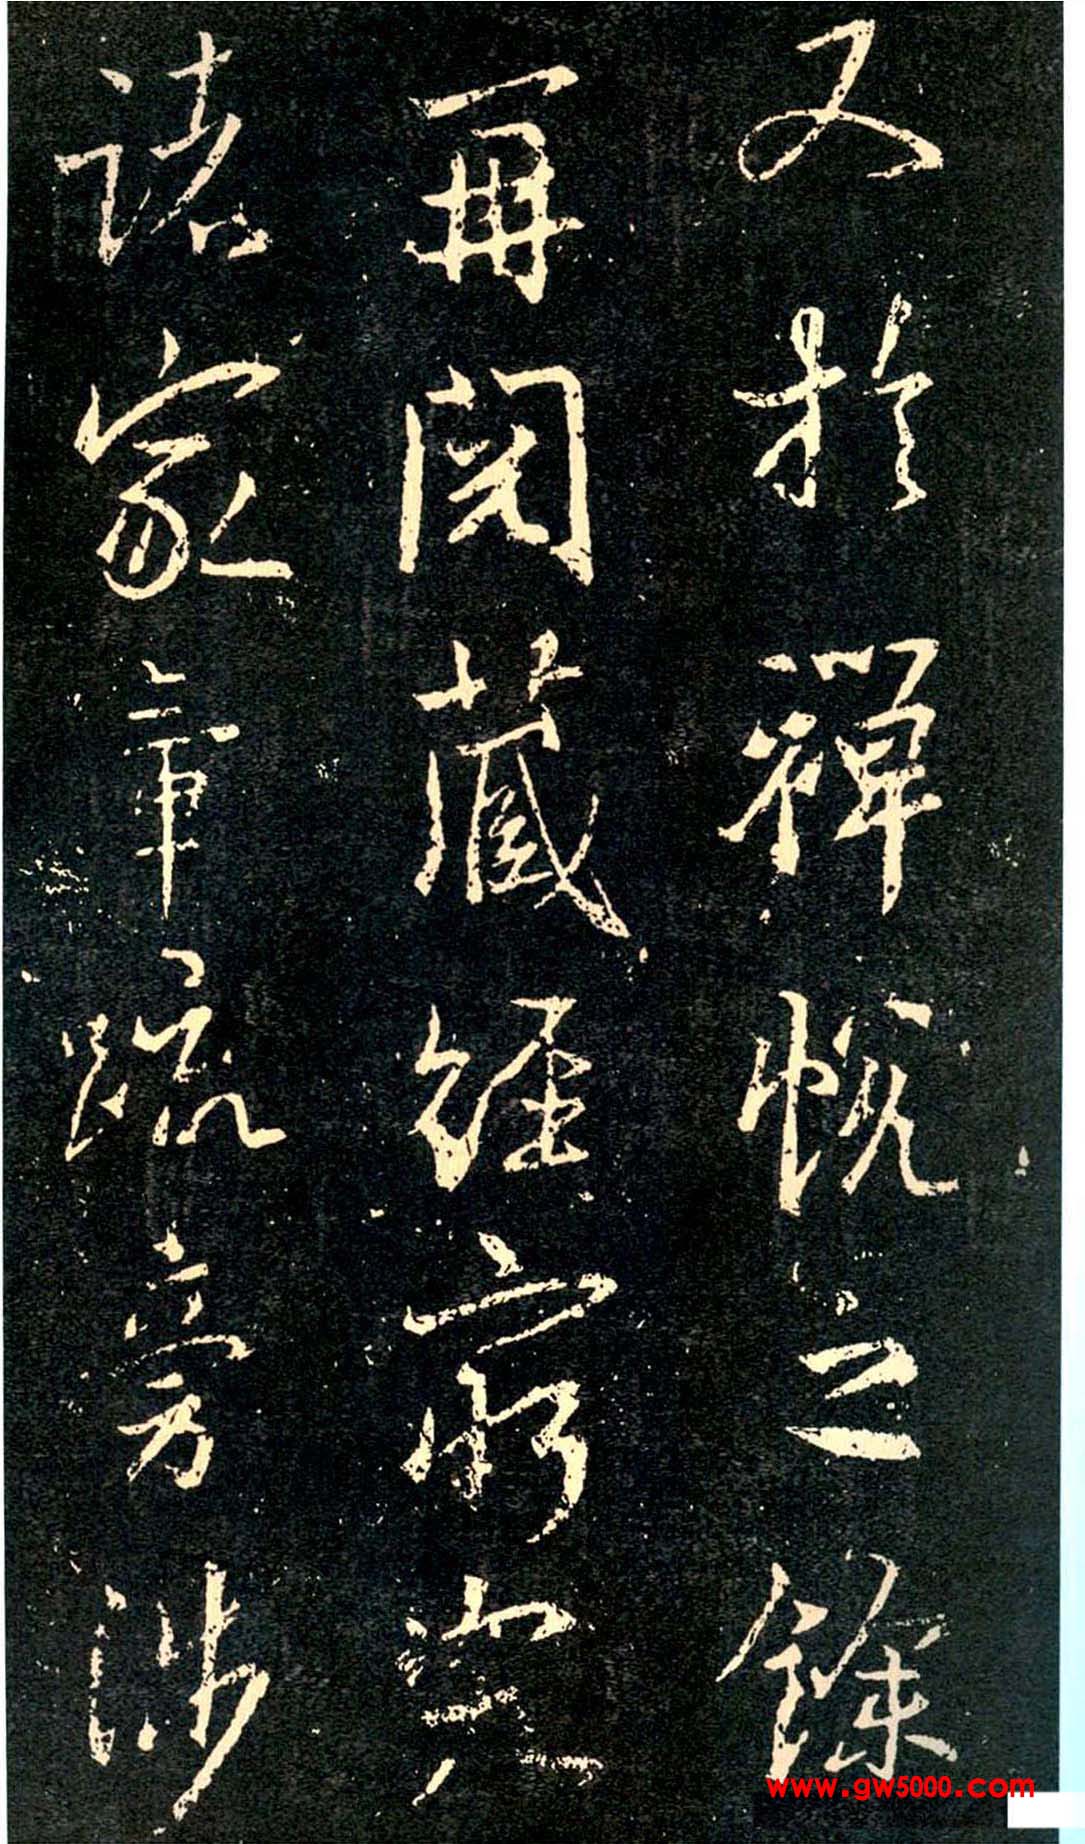 又於禪悅之餘
再閱藏經窮
諸家章疏旁涉
www.gw5000.com